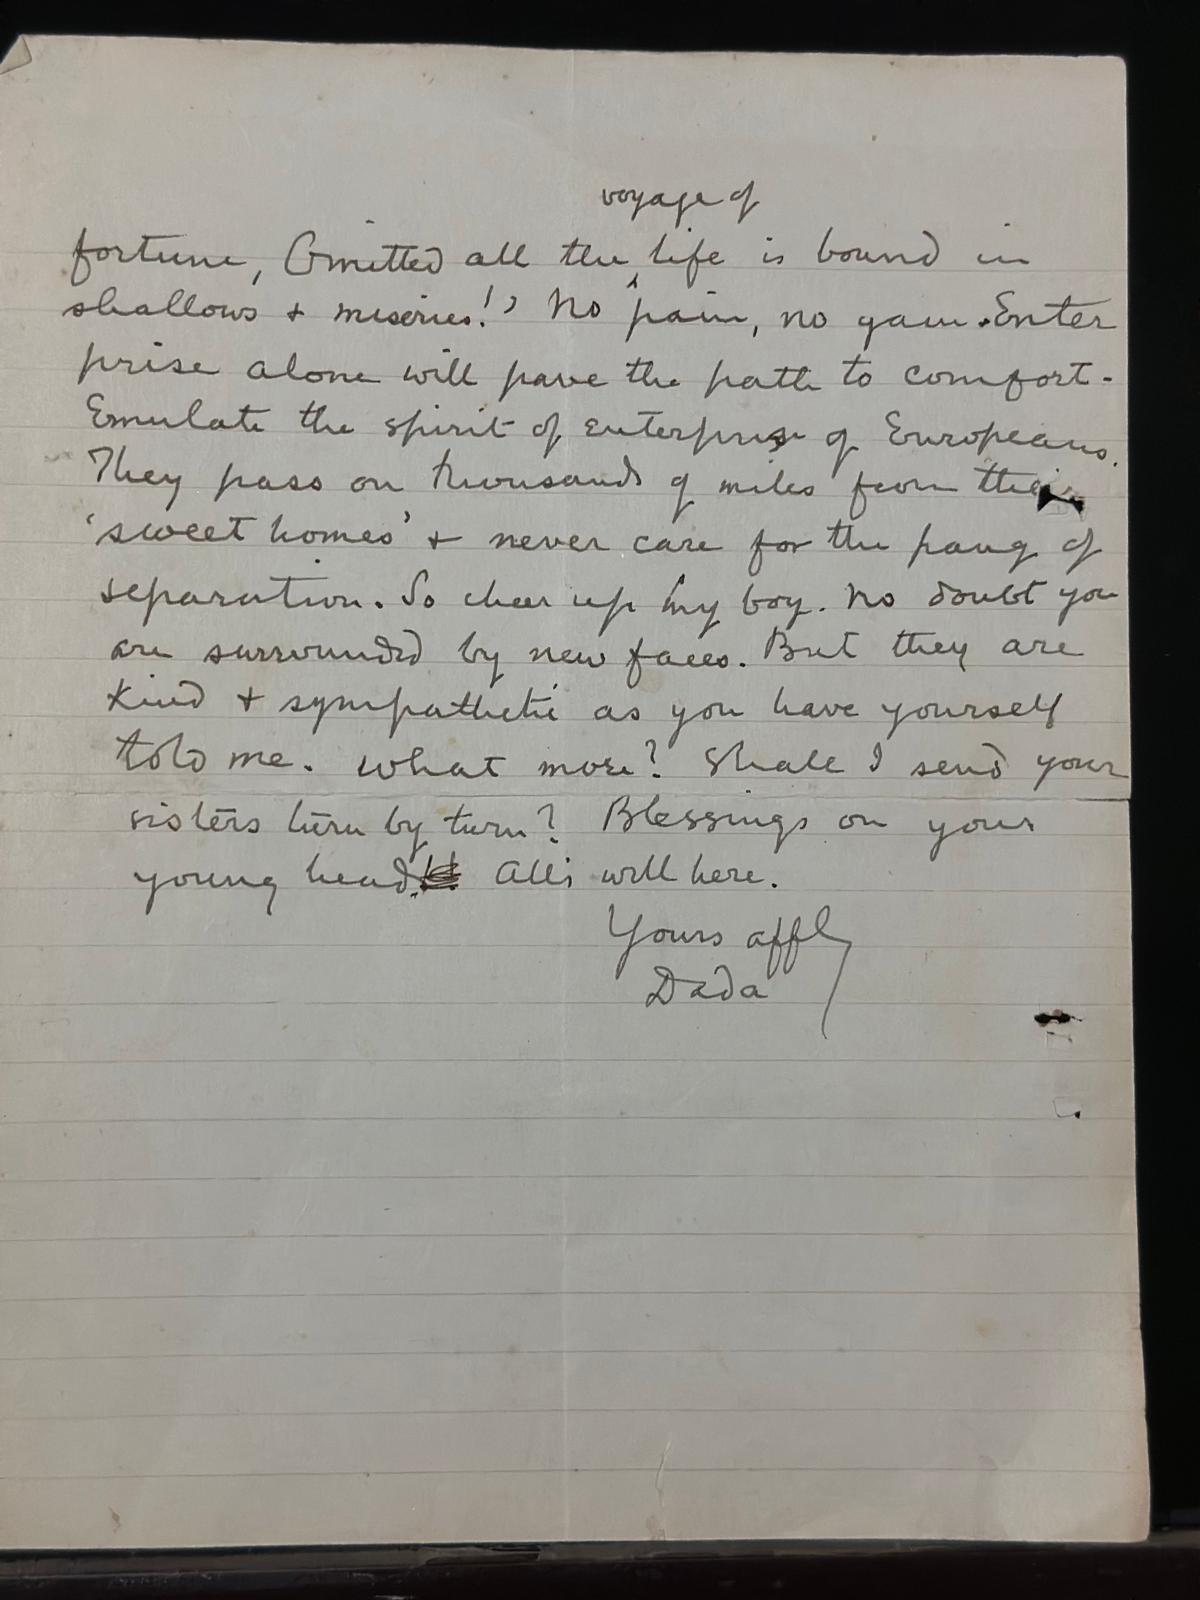 voyage of
fortune, Omitted all the ‸ life is bound in
shallows & miseries!' No pain, no gain. Enter
prise alone will pave the path to comfort.
Emulate the spirit of enterprise of Europeans.
They pass on thousands of miles from their
'sweet homes' & never care for the pang of
separation. So cheer up my boy. No doubt you
are surrounded by new faces. But they are
kind & sympathetic as you have yourself
told me. What more? Shall I send your
sisters turn by turn? Blessings on your
young head. All's well here.
Yours affly
Dada